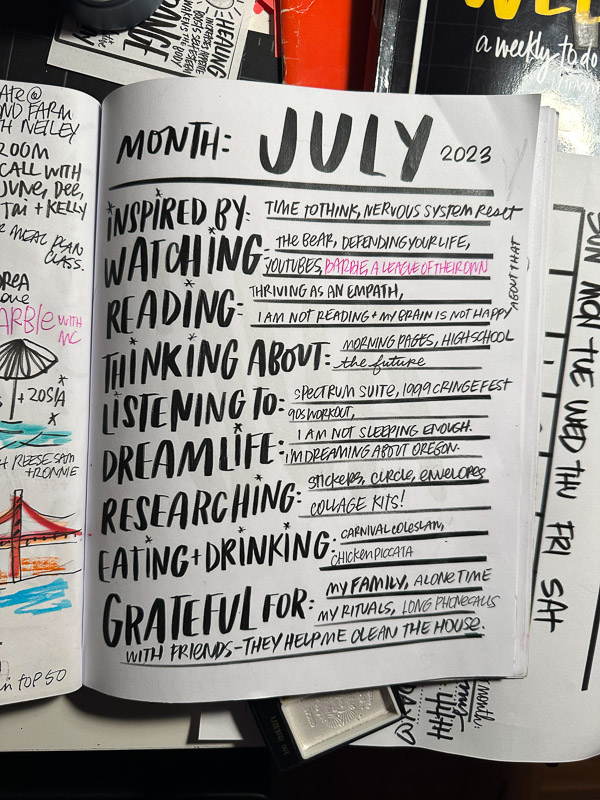 HEALING
a weekly to do
MONTH: JULY 2023
INSPIRED BY: TIME TO THINK, NERVOUS SYSTEM RESET
WATCHING: THE BEAR, DEFENDING YOUR LIFE,
YOUTUBES, BARBIE, A LEAGUE OF THEIR OWN
READING: THRIVING AS AN EMPATH,
I AM NOT READING + MY BRAIN IS NOT HAPPY
ABOUT THAT
THINKING ABOUT: MORNING PAGES, HIGH SCHOOL
the future
LISTENING TO: SPECTRUM SUITE, 1999 CRINGE FEST
90S WORKOUT,
DREAM LIFE: I AM NOT SLEEPING ENOUGH.
I'M DREAMING ABOUT OREGON.
RESEARCHING: stickers, circle, envelopes
COLLAGE KITS!
EATING + DRINKING: CARNIVAL COLESLAW,
CHICKEN PICCATA
GRATEFUL FOR: MY FAMILY, ALONE TIME
MY RITUALS, LONG PHONE CALLS
WITH FRIENDS - THEY HELP ME CLEAN THE HOUSE.
ND FARM
TH NEILEY
ROOM
CALL WITH
JUNE, DEE,
TM + KELLY
MEAL PLAN
CLASS.
REA
ARBIE WITH
MC
+ 20 S/A
REESE SAM
+ RONNIE
in TOP 50
SUN MON TUE WED TH FRI SAT
month: